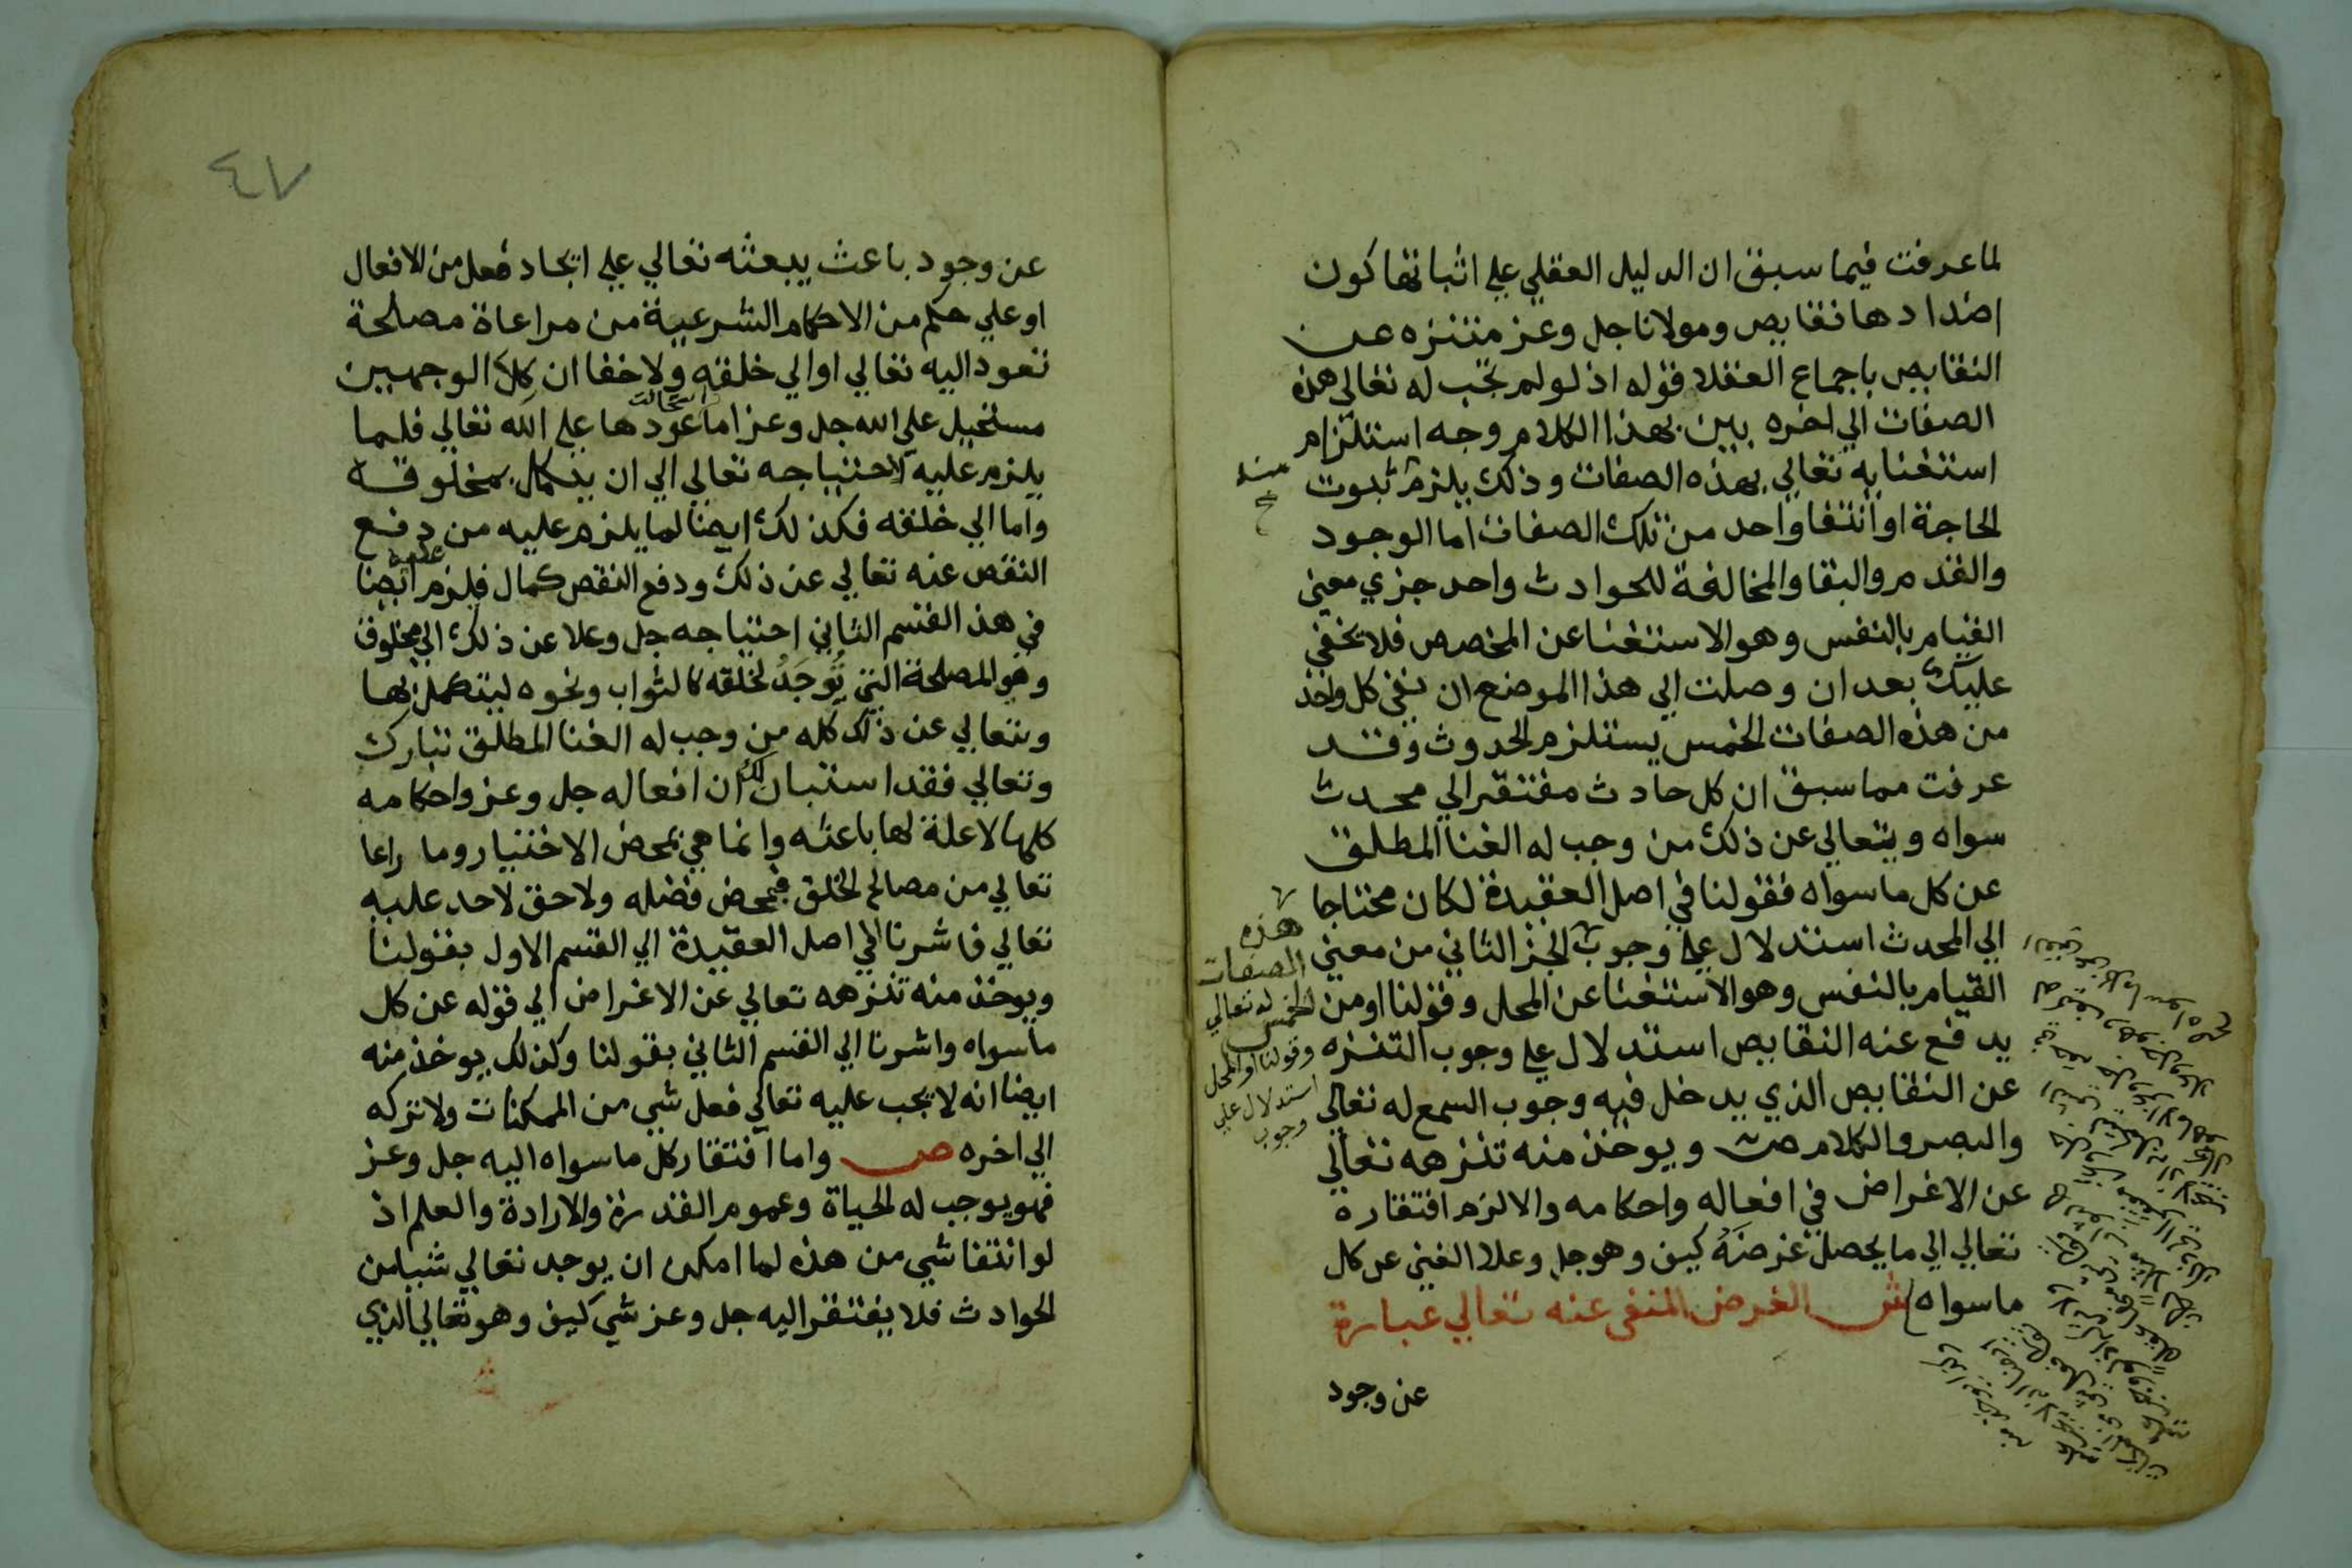 لما عرفت فيما سبق ان الدليل العقلي علي اثباتها كون
اضدادها نقايص ومولانا جل وعز منزه عن
النقايص باجماع العقلا قوله اذ لو لم تجب له تعالي هذه
الصفات الي اخره بين بهذا الكلام وجه استلزام
استغنايه تعالي بهذه الصفات وذلك يلزم ثبوت
الحاجة او انتفا واحد من تلك الصفات اما الوجود
والقدم والبقا والمخالفة للحوادث واحد جزي معني
القيام بالنفس وهو الاستغنا عن المخصص فلا يخفي
عليك بعد ان وصلت الي هذا الموضع ان نفي كل واحد
من هذه الصفات الخمس يستلزم الحدوث وقد
عرفت مما سبق ان كل حادث مفتقر الي محدث
سواه ويتعالي عن ذلك من وجب له الغنا المطلق
عن كل ما سواه فقولنا في اصل العقيدة لكان محتاجا
الي المحدث استدلال علي وجوب الجز الثاني من معني
القيام بالنفس وهو الاستغنا عن المحل وقولنا او من
يدفع عنه النقايص استدلال علي وجوب التنزه
عن النقايص الذي يدخل فيه وجوب السمع له تعالي
والبصر والكلام ص ويوخذ منه تنزهه تعالي
عن الاغراض في افعاله واحكامه والا لزم افتقاره
تعالي الي ما يحصل غرضه كيف وهو جل وعلا الغني عن كل
ما سواه ش الغرض المنفي عنه تعالي عبارة
عن وجود
هذه
الصفات
الخمس له تعالي
وقولنا او المحل
استدلال علي
وجوب
٤٧
عن وجود باعث يبعثه تعالي علي ايجاد فعل من الافعال
او علي حكم من الاحكام الشرعية من مراعاة مصلحة
تعود اليه تعالي او الي خلقه ولا خفا ان كلا الوجهين
مستحيل علي الله جل وعز اما عودها علي الله تعالي فلما
يلزم عليه لاحتياجه تعالي الي ان يتكمل بمخلوقه
واما الي خلقه فكذلك ايضا لما يلزم عليه من دفع
النقص عنه تعالي عن ذلك ودفع النقص كمال فلزم ايضا
في هذ القسم الثاني احتياجه جل وعلا عن ذلك الي مخلوق
وهو المصلحة التي توجد لخلقه كالثواب ونحوه ليتكمل بها
ويتعالي عن ذلك كله من وجب له الغنا المطلق تبارك
وتعالي فقد استبان لك ان افعاله جل وعز واحكامه
كلها لا علة لها باعثه وانما هي بمحض الاختيار وما راعا
تعالي من مصالح الخلق فبمحض فضله ولا حق لاحد عليه
تعالي فاشرنا في اصل العقيدة الي القسم الاول بقولنا
ويوخذ منه تنزهه تعالي عن الاغراض الي قوله عن كل
ما سواه واشرنا الي القسم الثاني بقولنا وكذلك يوخذ منه
ايضا انه لا يجب عليه تعالي فعل شي من الممكنات ولا تركه
الي اخره ص واما افتقار كل ما سواه اليه جل وعز
فهو يوجب له الحياة وعموم القدرة والارادة والعلم اذ
لو انتفا شي من هذه لما امكن ان يوجد تعالي شيا من
الحوادث فلا يفتقر اليه جل وعز شي كيف وهو تعالي الذي